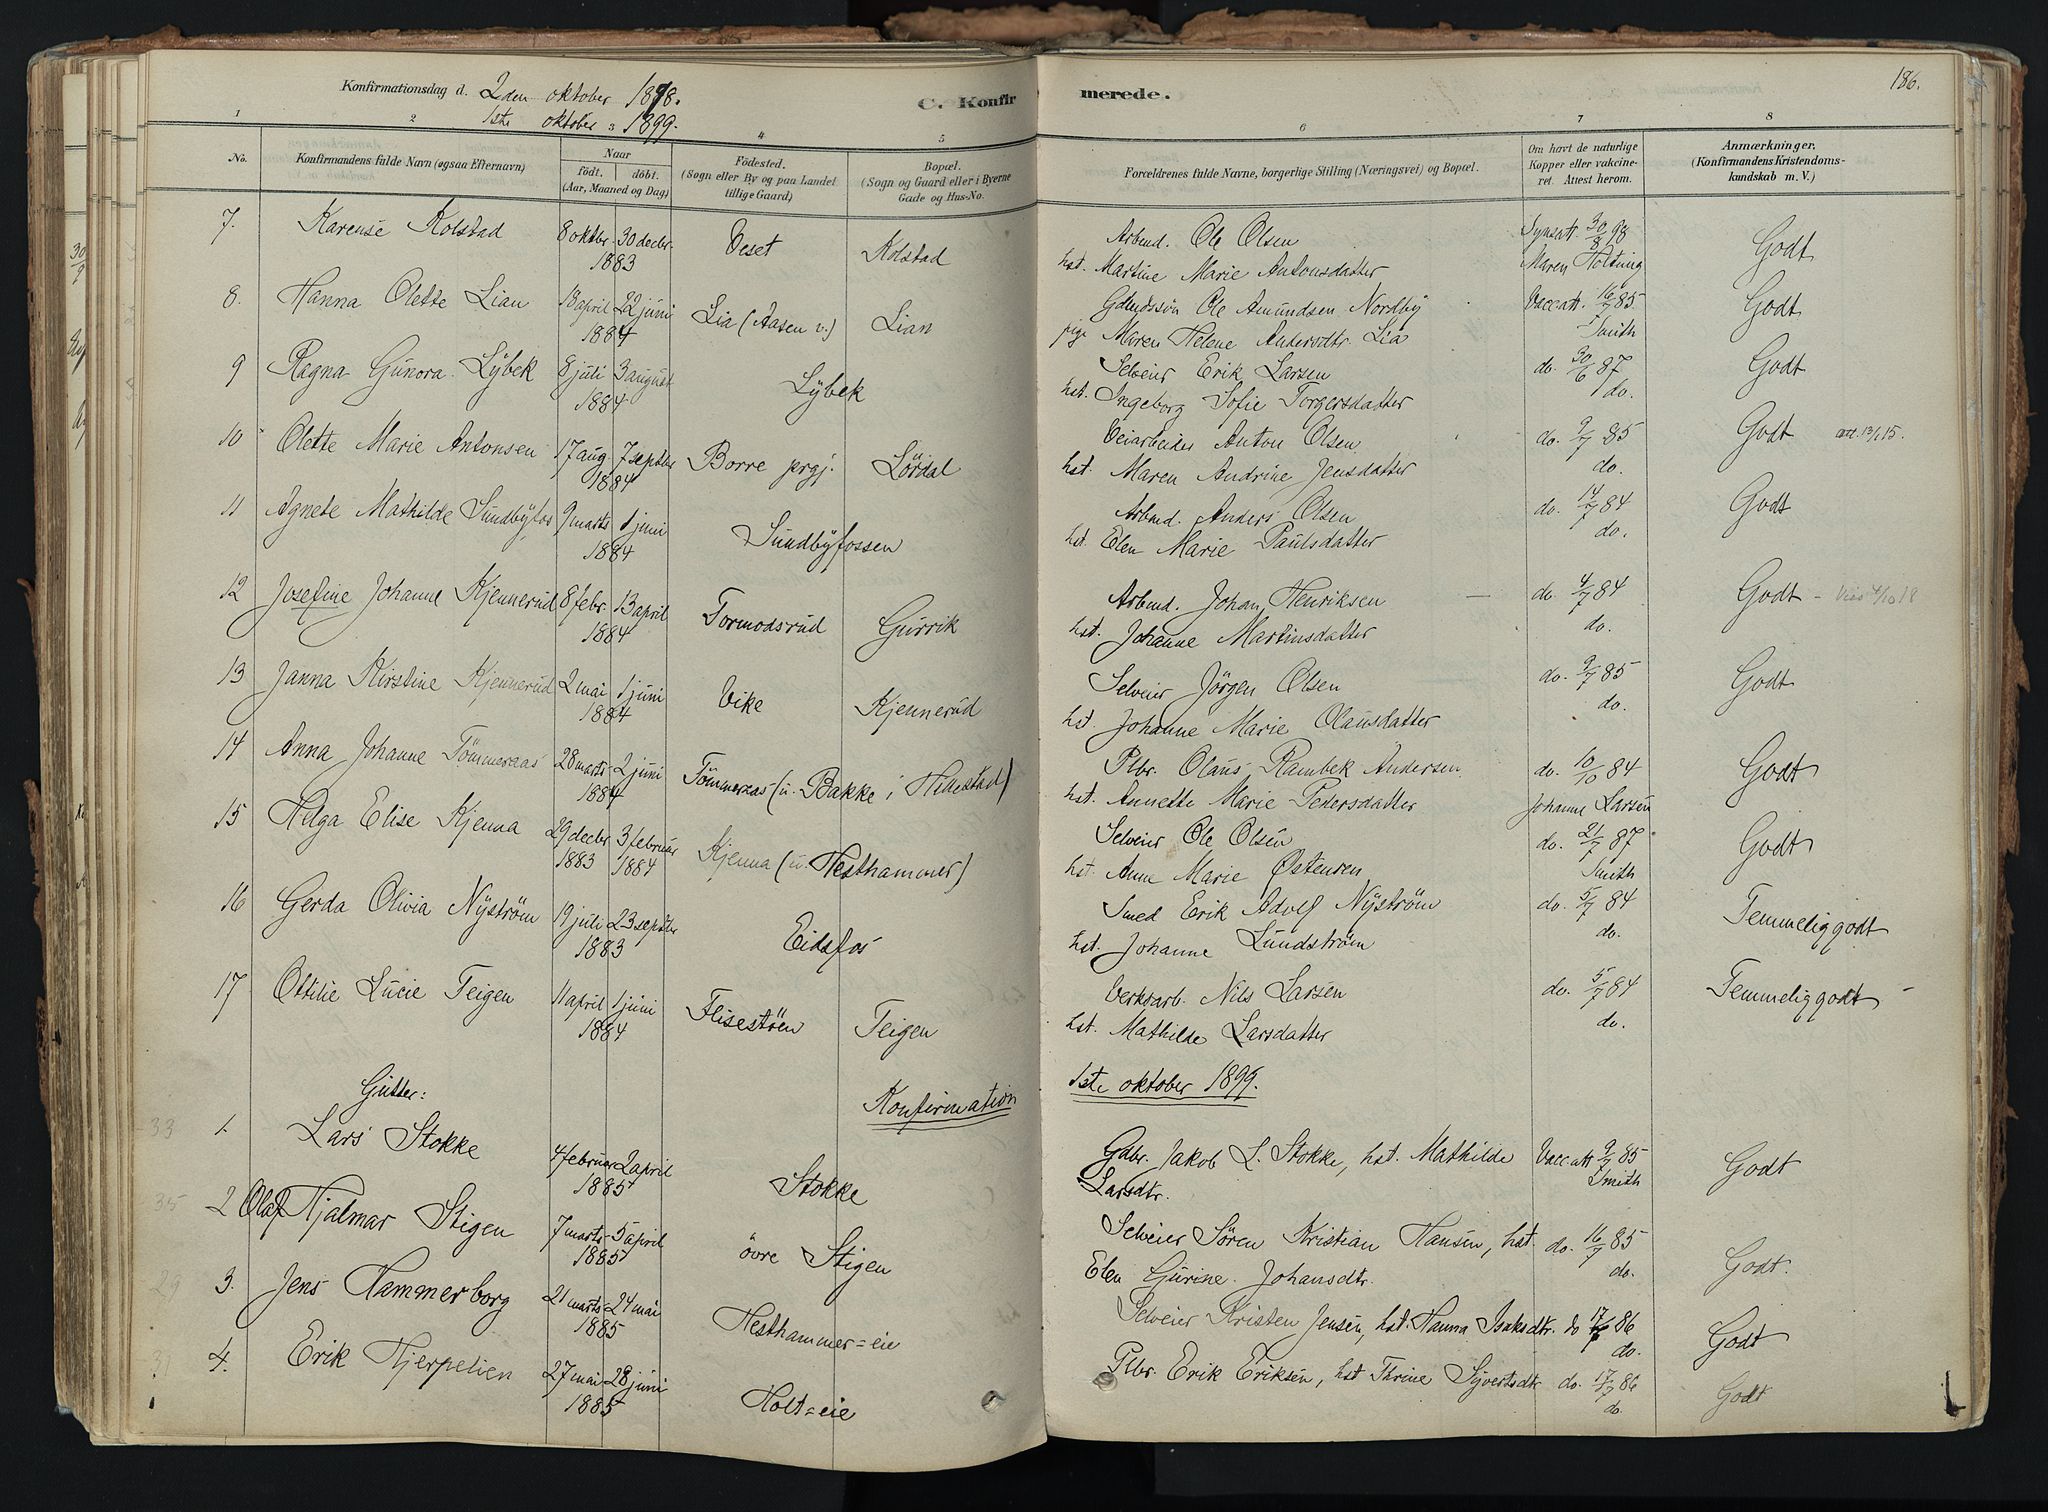 Konfirmationsdag d. 2den oktober 1898.
1ste oktober 1899.
C. Konfirmerede.
186.
1 2 3 4 5 6 7 8
No. Konfirmandens fulde Navn (ogsaa Efternavn) Naar født. døbt. (Aar, Maaned og Dag) Fødested. (Sogn eller By og paa Landet tillige Gaard) Bopæl. (Sogn og Gaard eller i Byerne Gade og Hus-No. Forældrenes fulde Navne, borgerlige Stilling (Næringsvei) og Bopæl. Om havt de naturlige Kopper eller vakcineret. Attest herom. Anmærkninger. (Konfirmandens Kristendomskundskab m. V.)
7. Karense Kolstad 8 oktbr. 30 decbr. Veset Kolstad Arbmd. Ole Olsen Synsatt. 30/8 98 Godt
1883 hst. Martine Marie Antonsdatter Maren Holtung
8. Hanna Olette Lian 18 april 22 juni Lia (Aasen v.) Lian Gdmdssøn Ole Amundsen Nordby Vacc.att. 16/7 85 Godt
1884 pige Maren Helene Andersdtr. Lia Smith
9 Ragna Gunora Lybek 8 juli 3 august Lybek Selveier Erik Larsen do. 30/6 87 Godt
1884 hst. Ingeborg Sofie Torgersdatter do.
10 Olette Marie Antonsen 17 aug. 7 septbr Borre prgj. Lørdal Veiarbeider Anton Olsen do. 9/7 85 Godt att. 13/1 15.
1884 hst. Maren Andrine Jensdatter do.
11 Agnete Mathilde Sundbyfos 9 marts 1 juni Sundbyfossen Arbmd. Anders Olsen do. 14/7 84 Godt
1884 hst. Elen Marie Paulsdatter do.
12 Josefine Johanne Kjennerud 8 febr. 13 april Tormodsrud Gurrik Arbmd. Johan Henriksen do. 4/7 84 Godt
1884 hst. Johanne Martinsdatter do.
13 Janna Kirstine Kjennerud 2 mai 1 juni Vike Kjennerud Selveier Jørgen Olsen do. 9/7 85 Godt
1884 hst. Johanne Marie Olausdatter do.
14 Anna Johanne Tømmeraas 28 marts 2 juni Tømmeraas (u. Bakke i Hillestad) Plbr. Olaus Rambek Andersen do. 10/10 84 Godt
1884 hst. Annette Marie Pedersdatter Johanne Larsen
15 Helga Elise Kjenna 29 decbr 3 februar Kjenna (u. Hesthammer) Selveier Ole Olsen do. 21/7 87 Godt
1883 1884 hst. Anne Marie Østensen Smith
16 Gerda Olivia Nystrøm 19 juli 23 septbr Eidsfos Smed Erik Adolf Nystrøm do. 5/7 84 Temmelig godt
1883 hst. Johanne Lundstrøm do.
17 Ottilie Lucie Teigen 11 april 1 juni Flisestrøen Teigen Verksarb. Nils Larsen do. 5/7 84 Temmelig godt
1884 hst. Mathilde Larsdatter do.
Gutter: Konfirmation 1ste oktober 1899.
33 1. Lars Stokke 4 februar 2 april Stokke Gdbr. Jakob L. Stokke, hst. Mathilde Vacc.att 9/7 85 Godt
1885 Larsdtr. Smith
35 2 Olaf Hjalmar Stigen 7 marts 5 april øvre Stigen Selveier Søren Kristian Hansen, hst. do. 16/7 85 Godt.
1885 Elen Gurine Johansdtr. do.
29 3. Jens Hammerborg 21 marts 24 mai Hesthammer=eie Selveier Kristen Jensen, hst. Hanna Isaksdtr. do 17/7 86 Godt
1885 do.
31 4. Erik Hjerpelien 27 mai 28 juni Holt=eie Plbr. Erik Eriksen, hst Thrine Syvertsdtr do. 17/7 86 Godt
1885 do.